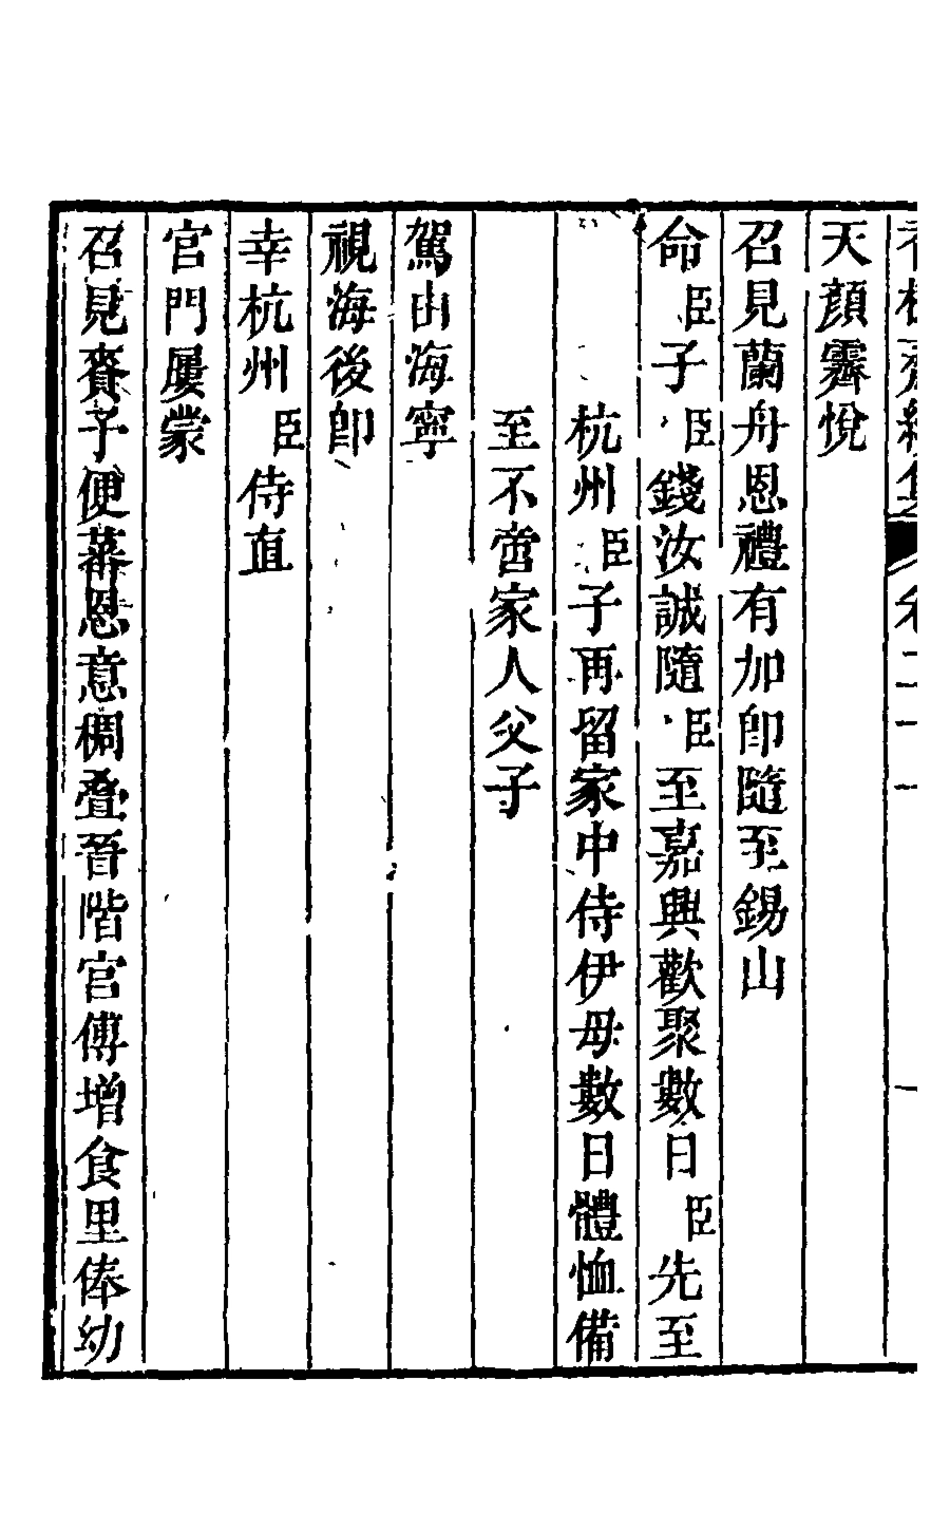 香樹齋續集 卷二一 一
天顔霽悅
召見蘭舟恩禮有加卽隨至錫山
命臣子臣錢汝誠隨臣至嘉興歡聚數日臣先至
杭州臣子再留家中侍伊母數日體恤備
至不啻家人父子
駕由海寧
視海後卽
幸杭州臣侍直
宫門屢蒙
召見賚予便蕃恩意稠叠晉階宫傅增食里俸幼